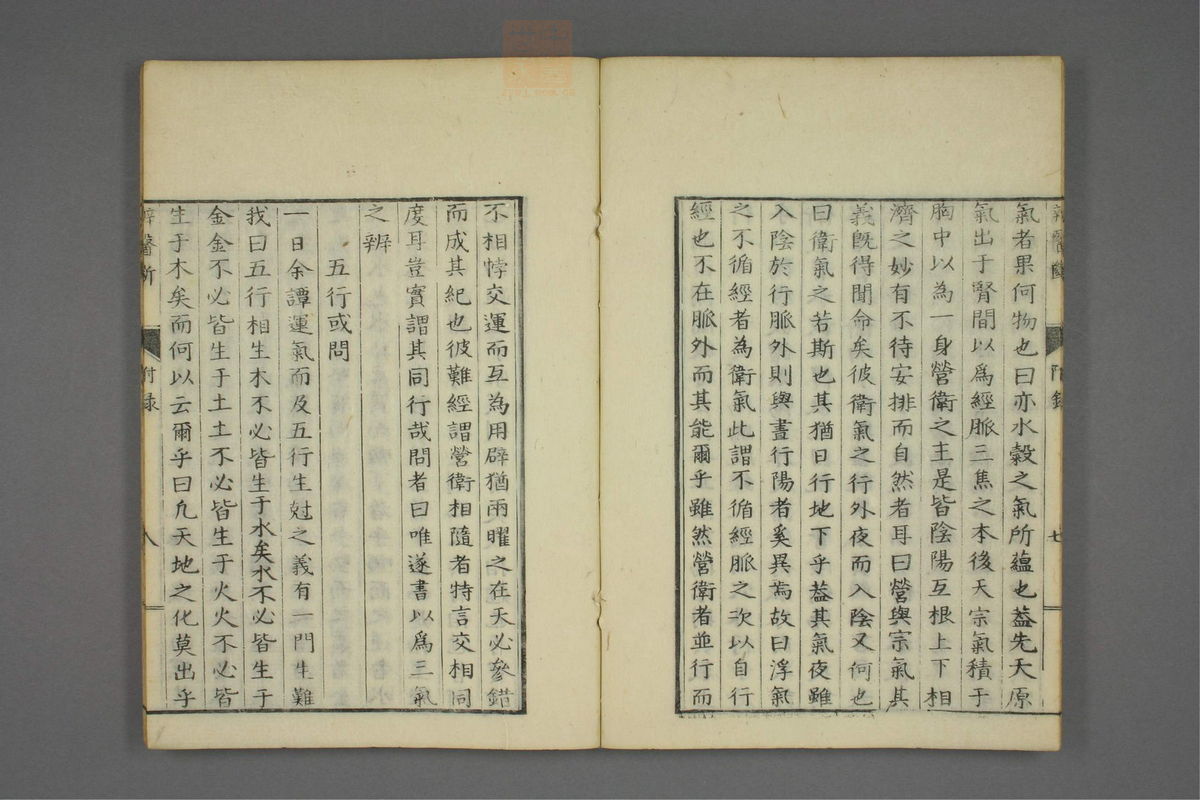 氣者果何物也曰亦水穀之氣所蘊也葢先天原
氣出于腎間以爲經脈三焦之本後天宗氣積于
胸中以為一身營衛之主是皆陰陽互根上下相
濟之妙有不待安排而自然者耳曰營與宗氣其
義旣得聞命矣彼衛氣之行外夜而入陰又何也
曰衛氣之若斯也其猶日行地下乎葢其氣夜雖
入陰於行脈外則與晝行陽者奚異焉故曰浮氣
之不循經者為衛氣此謂不循經脈之次以自行
經也不在脈外而其能爾乎雖然營衛者並行而
不相悖交運而互為用辟猶兩曜之在天必參錯
而成其紀也彼難經謂營衛相隨者特言交相同
度耳豈實謂其同行哉問者曰唯遂書以爲三氣
之辨
五行或問
一日余譚運氣而及五行生尅之義有一門生難
我曰五行相生木不必皆生于水矣水不必皆生于
金金不必皆生于土土不必皆生于火火不必皆
生于木矣而何以云爾乎曰凡天地之化莫出乎
醫斷
附录
八
七